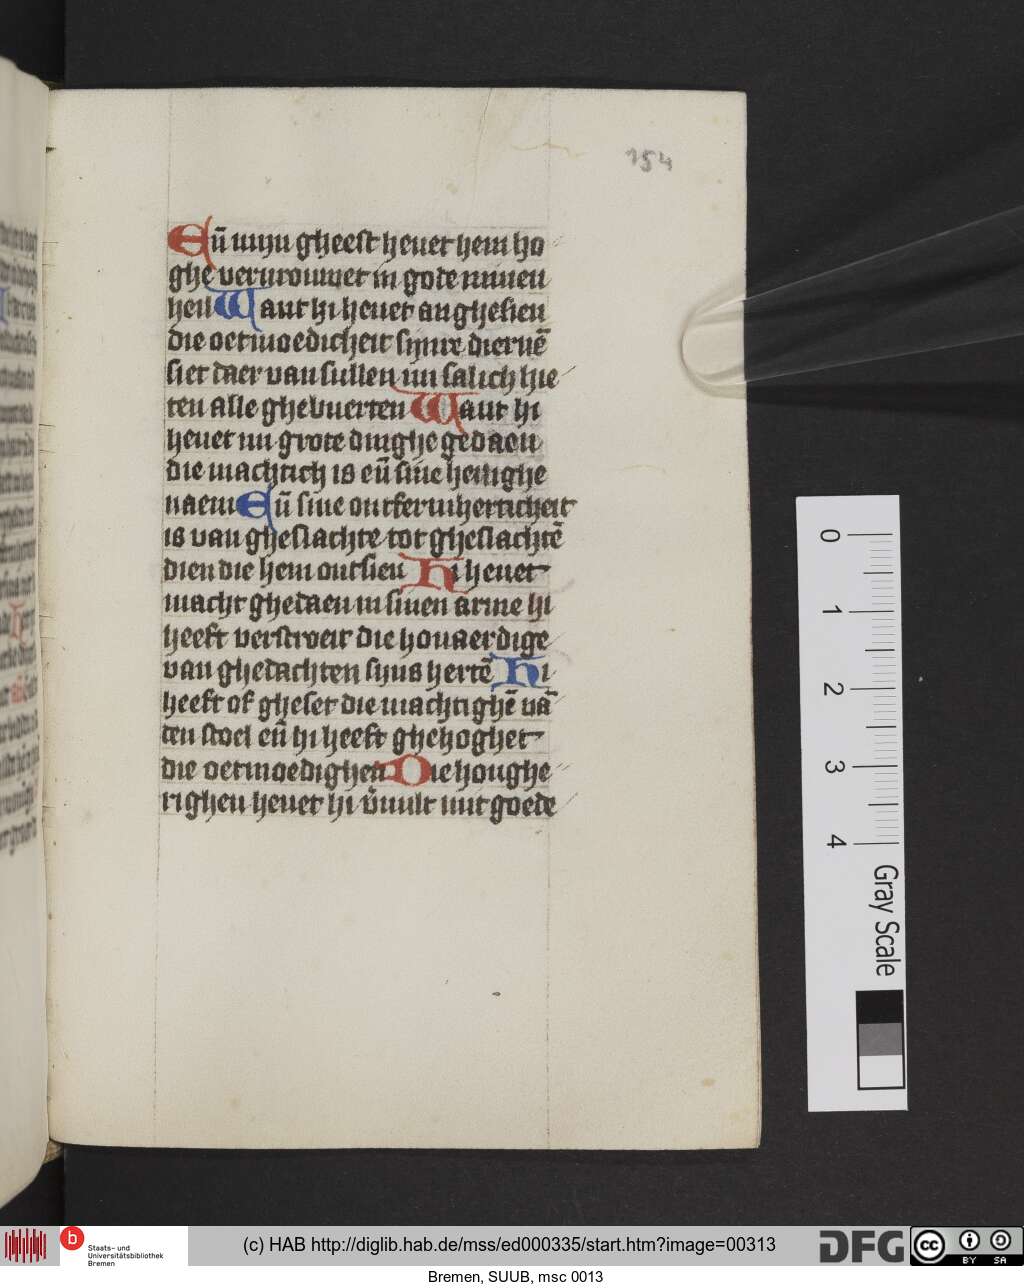 154
Eñ mijn gheest heuet hem ho
ghe verurouwet in gode minen
heil Want hi heuet anghesien
die oetmoedicheit sijnre diernē
siet daer van sullen mi salich hie
ten alle ghebuerten Want hi
heuet mi grote dinghe gedaen
die machtich is eñ sine heilighe
naem Eñ sine ontfermherticheit
is van gheslachte tot gheslachtē
dien die hem ontsien Hi heuet
macht ghedaen in sinen arme hi
heeft verstroeit die houaerdige
van ghedachten sijns hertē Hi
heeft of gheset die machtighē vā
den stoel eñ hi heeft ghehoghet
die oetmoedighen Die houghe
righen heuet hi v̄uult mit goede
0
1
2
3
4
Gray Scale
b
Staats- und
Universitätsbibliothek
Bremen
(c) HAB http://diglib.hab.de/mss/ed000335/start.htm?image=00313
DFG
cc
BY SA
Bremen, SUUB, msc 0013